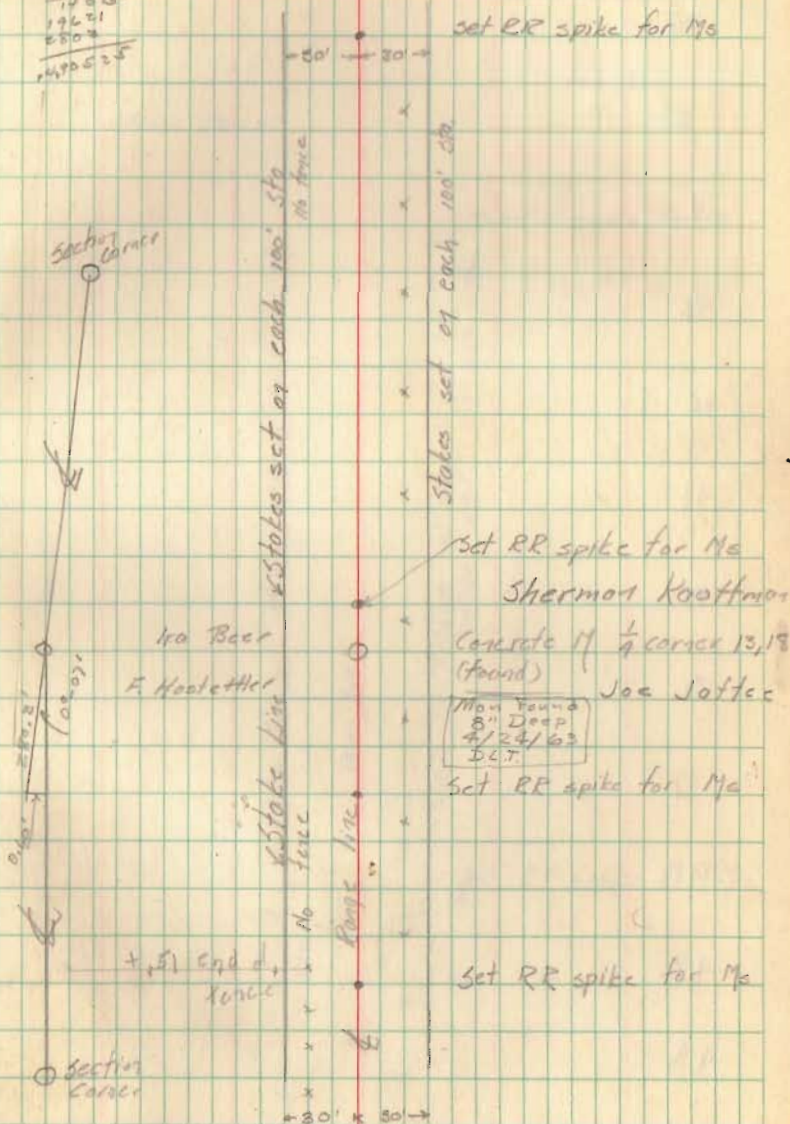 19621
.490525
Set RR spike for Ms
30' 30'
Stakes set on each 100' Sta
No fence
Stakes set on each 100' Sta
Section
Corner
Set RR spike for Ms
Sherman Kauffman
Ira Beer
Concrete M 1/4 corner 13,18
(found)
F. Hostettler
Joe Joftee
0°-07'
280.8'
Mon Found
8" Deep
4/24/63
D.L.T.
Set RR spike for Ms
Stake Line
No fence
Range line
0.60'
+.51 end of
fence
Set RR spike for Ms
Section
Corner
30' 30'